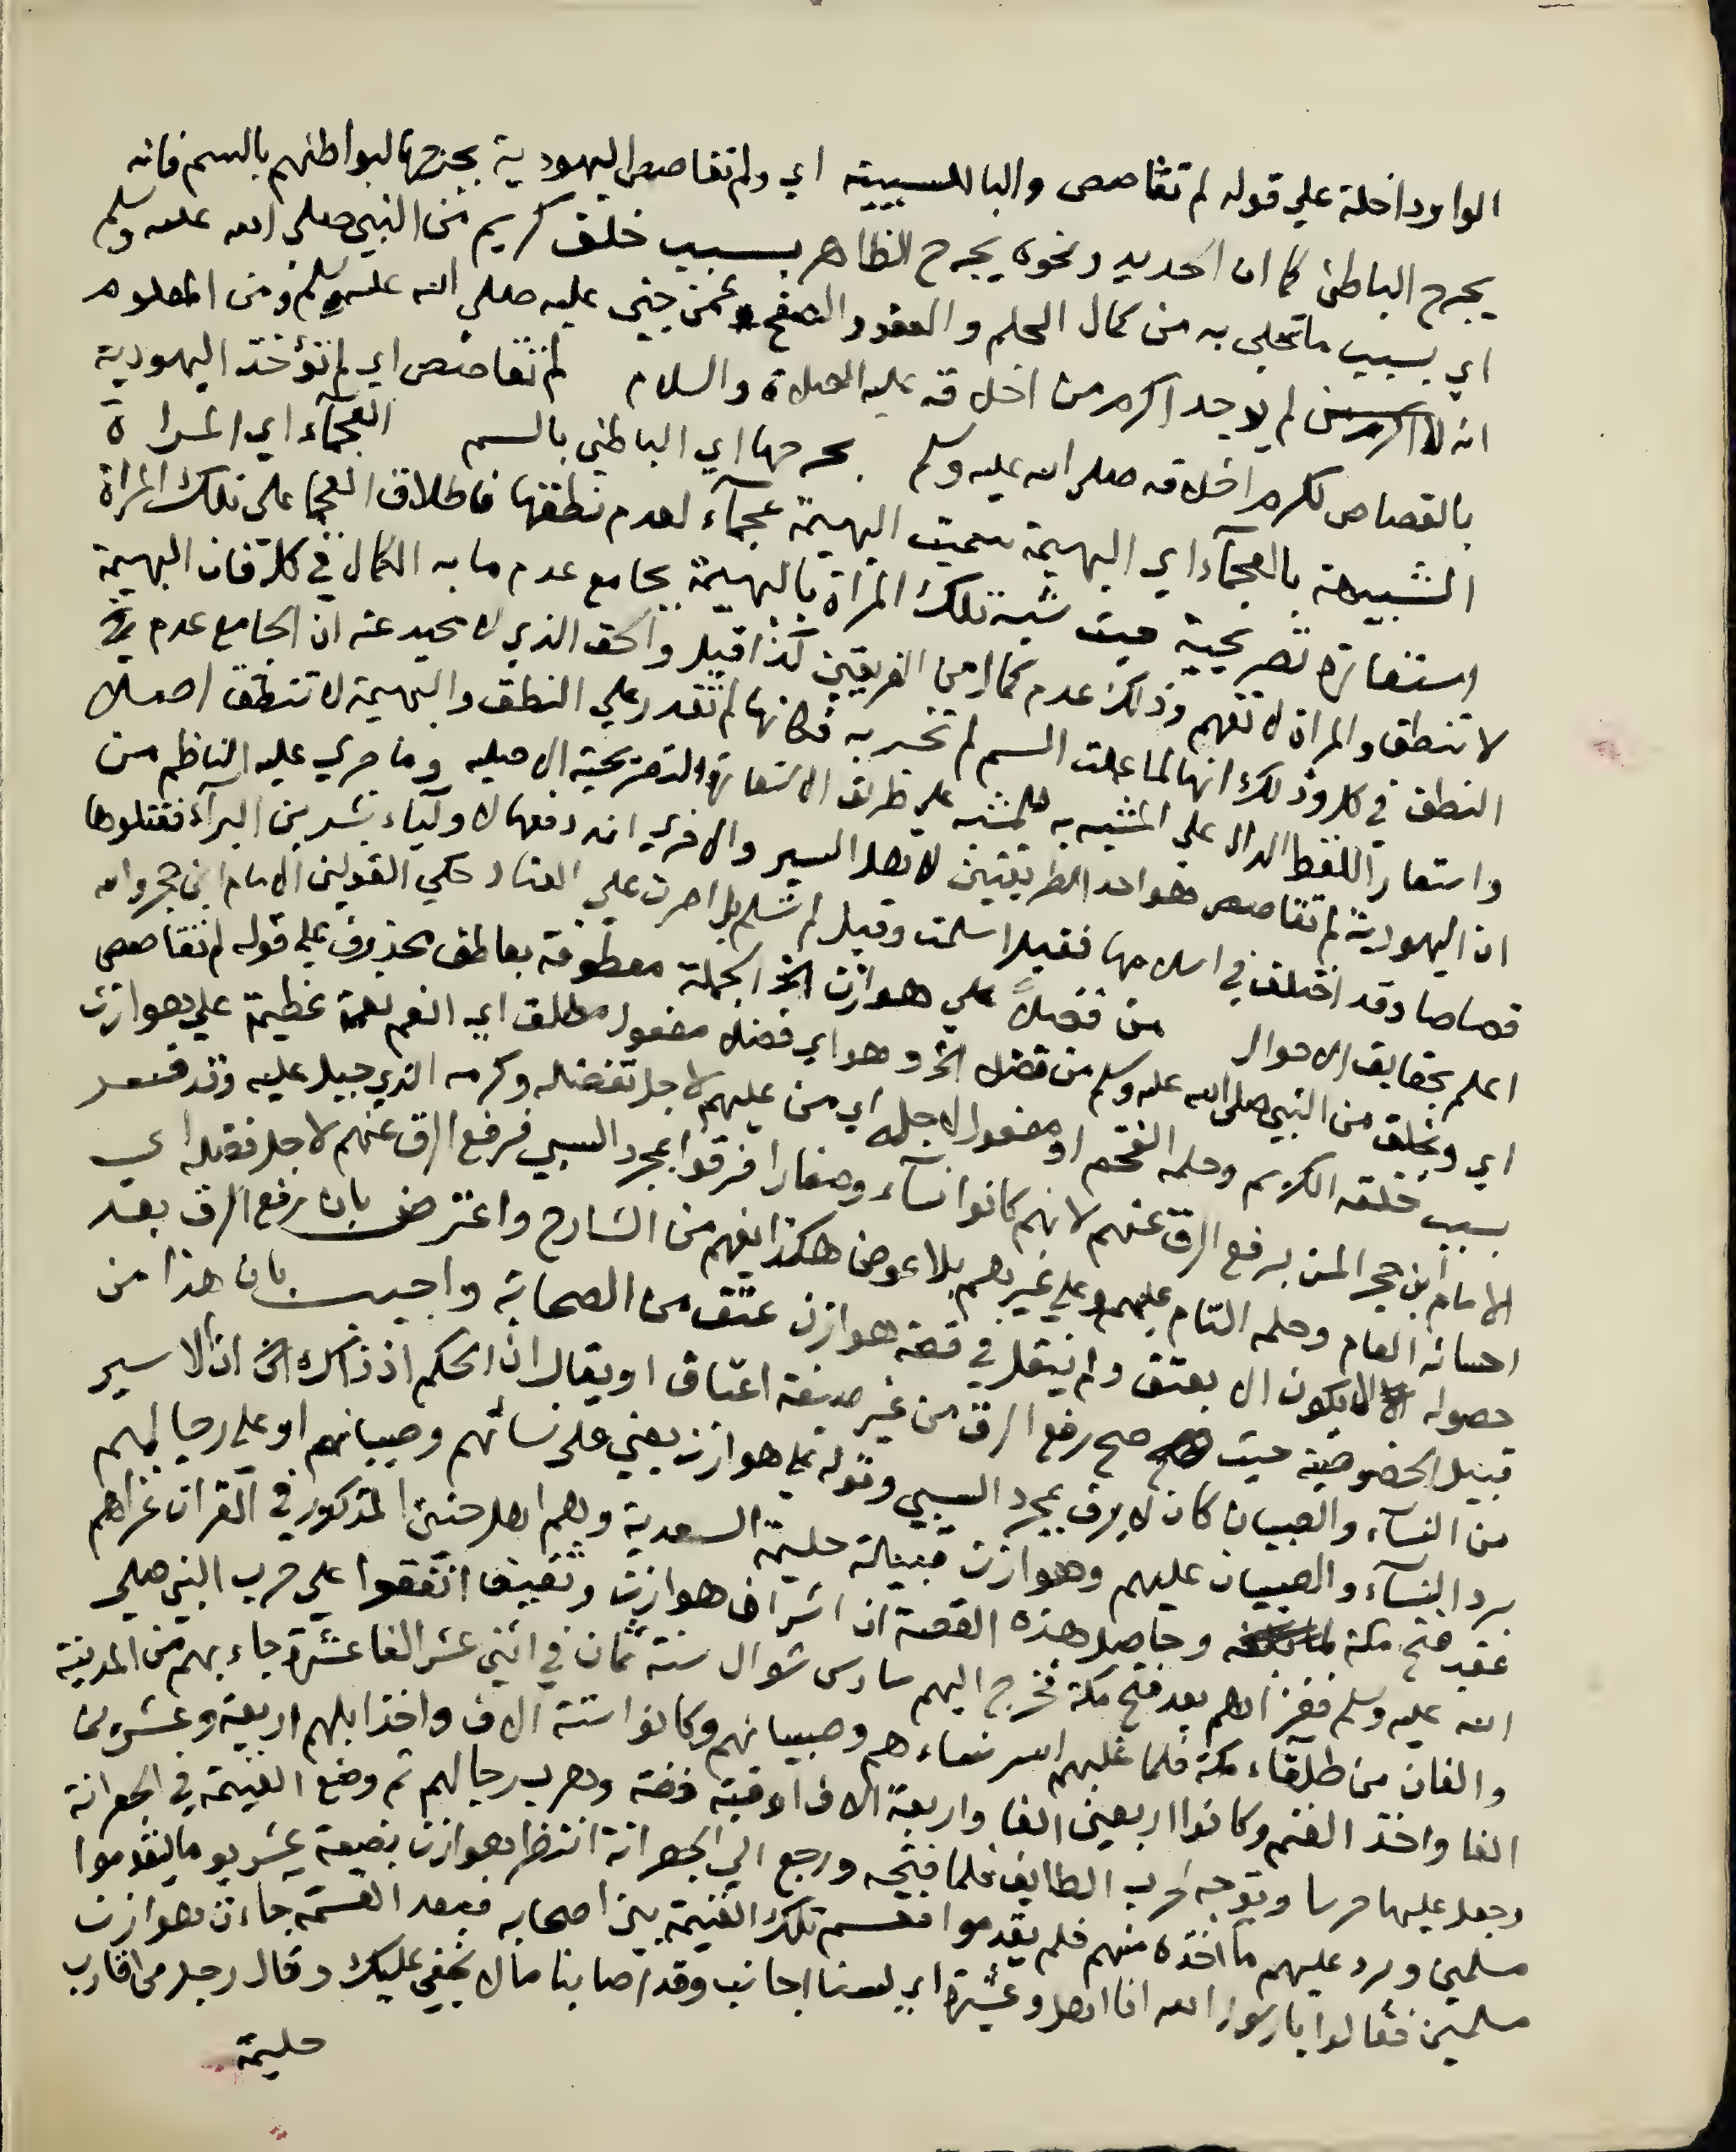 الواو داخلة علي قوله لم تقاصص والبا للسببية اي ولم تقاصص اليهودية بجرحها لبواطنهم بالسم فانه
يجرح الباطن كما ان الحديد ونحوه يجرح الظاهر بسبب خلق كريم من النبي صلي الله عليه وسلم
اي بسبب ما تحلي به من كمال الحلم والعفو والصفح عمن جني عليه صلي الله عليه وسلم ومن المعلوم
انه لم يوجد اكرم من اخلاقه عليه الصلاة والسلام لم تقاصص اي لم تؤخذ اليهودية
بالقصاص لكرم اخلاقه صلي الله عليه وسلم بجرحها اي الباطن بالسم العجمآء اي المراة
الشبيهة بالعجمآء اي البهيمة سميت البهيمة عجمآء لعدم نطقها فاطلاق العجما علي تلك المراة
استعارة تصريحية حيث شبه تلك المراة بالبهيمة بجامع عدم ما به الكمال في كل فان البهيمة
لا تنطق والمراة لا تفهم وذلك عدم كمال من الفريقين كذا قيل والحق الذي لا محيد عنه ان الجامع عدم
النطق في كل وذلك انها لما علمت السم لم تخبر به فكانها لم تقدر علي النطق والبهيمة لا تنطق اصلا
واستعار اللفظ الدال علي المشبه به للمشبه علي طريق الاستعارة التصريحية الاصليه وما جري عليه الناظم من
ان اليهودية لم تقاصص هو احد الطريقتين لاهل السير والاخري انه دفعها لاوليآء بشر بن البرآء فقتلوها
قصاصا وقد اختلف في اسلامها فقيل اسلمت وقيل لم تسلم بل اصرت علي العناد حكي القولين الامام ابن حجر والله
اعلم بحقايق الاحوال من فضلاً علي هوازن الخ الجملة معطوفة بعاطف محذوف علي قوله لم تقاصص
اي وبخلق من النبي صلي الله عليه وسلم من فضلا الخ وهو اي فضلا مفعول مطلق اي انعم نعمة عظيمة علي هوازن
بسبب خلقه الكريم وحلمه الفخم او مفعول لاجله اي من عليهم لاجل تفضله وكرمه الذي جبل عليه وقد فسر
الامام ابن حجر المن برفع الرق عنهم لانهم كانوا نسآء وصغارا فرقوا بمجرد السبي فرفع الرق عنهم لاجل فضله اي
احسانه العام وحلمه التام عليهم وعلي غيرهم بلا عوض هكذا يفهم من الشارح واعترض بان رفع الرق بعد
حصوله لا يكون الا بعتق ولم ينقل في قصة هوازن عتق من الصحابة واجيب بان هذا من
قبيل الخصوصية حيث صح رفع الرق من غير صيغة اعتاق او يقال ان الحكم اذ ذاك ان الاسير
من النسآء والصبيان كان لا يرق بمجرد السبي وقوله علي هوازن يعني علي نسائهم وصبيانهم او علي رجالهم
برد النسآء والصبيان عليهم وهوازن قبيلة حليمة السعدية وهم اهل حنين المذكور في القران غزاهم
عقب فتح مكة وحاصل هذه القصة ان اشراف هوازن وثقيف اتفقوا علي حرب النبي صلي
الله عليه وسلم فغزاهم بعد فتح مكة فخرج اليهم سادس شوال سنة ثمان في اثني عشر الفا عشرة جاء بهم من المدينة
والفان من طلقآء مكة فلما غلبهم اسر نساءهم وصبيانهم وكانوا ستة الاف واخذ ابلهم اربعة وعشرين
الفا واخذ الغنم وكانوا اربعين الفا واربعة الاف اوقية فضة وهرب رجالهم ثم وضع الغنيمة في الجعرانة
وجعل عليها حرسا وتوجه لحرب الطايف فلما فتحه ورجع الي الجعرانة انتظر هوازن بضعة عشر يوما ليقدموا
مسلمين ويرد عليهم ما اخذه منهم فلم يقدموا فقسم تلك الغنيمة بين اصحابه فبعد القسمة جاءت هوازن
مسلمين فقالوا يا رسول الله انا اهل وعشيرة اي لسنا اجانب وقد اصابنا ما لا يخفي عليك وقال رجل من اقارب
حليمة